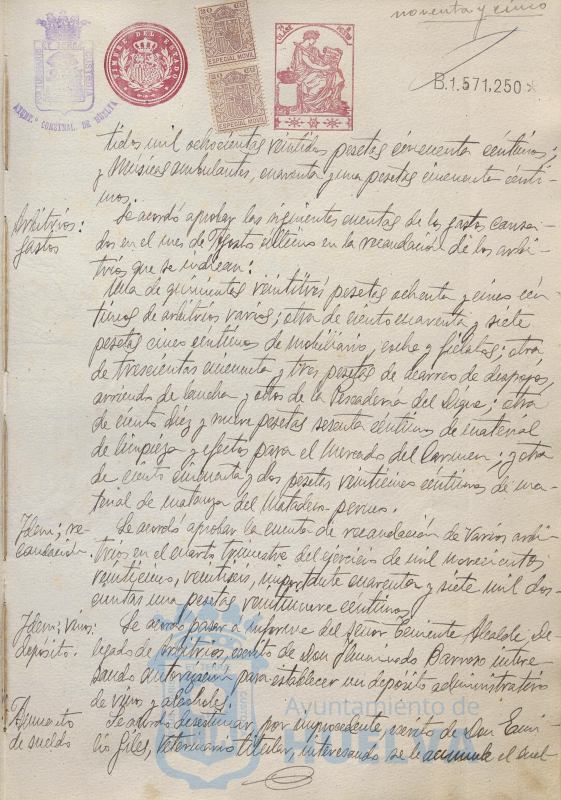 noventa y cinco
TIMBRE DEL ESTADO
20 CS
ESPECIAL MOVIL
ESPECIAL MOVIL
AYUNT.º CONSTNAL. DE HUELVA
B.1.571,250
tidos mil ochocientas veintidos pesetas cincuenta céntimos;
y Músicas ambulantes, cuarenta y una pesetas cincuenta cénti-
mos.
Arbitrios:
gastos
Se acordó aprobar las siguientes cuentas de los gastos causa-
dos en el mes de Agosto último en la recaudación de los arbi-
trios que se indican:
Una de quinientas veintitrés pesetas ochenta y cinco cén-
timos de arbitrios varios; otra de ciento cuarenta y siete
pesetas cinco céntimos de mobiliario, coche y fielatos; otra
de trescientas cincuenta y tres pesetas de acarreo de despojos,
arriendo de lancha y otros de la Pescadería del Dique; otra
de ciento diez y nueve pesetas sesenta céntimos de material
de limpieza y efectos para el Mercado del Carmen; y otra
de ciento cincuenta y dos pesetas veinticinco céntimos de ma-
terial de matanza del Matadero
Idem; re-
caudación.
Se acordó aprobar la cuenta de recaudación de varios arbi-
trios en el cuarto trimestre del ejercicio de mil novecientos
veinticinco, veintiséis, importante cuarenta y siete mil dos-
cientas una pesetas veintinueve céntimos.
Idem; vino;
depósito.
Se acordó pasar a informe del Señor Teniente Alcalde De-
legado de arbitrios, escrito de Don Barroso intere-
sando autorización para establecer un depósito administrativo
de vino y alcohol.
Aumento
de sueldo
Se acordó desestimar, por improcedente, escrito de Don Emi-
lio Giles, Veterinario titular, interesando se le acumule el suel-
Ayuntamiento de
HUELVA